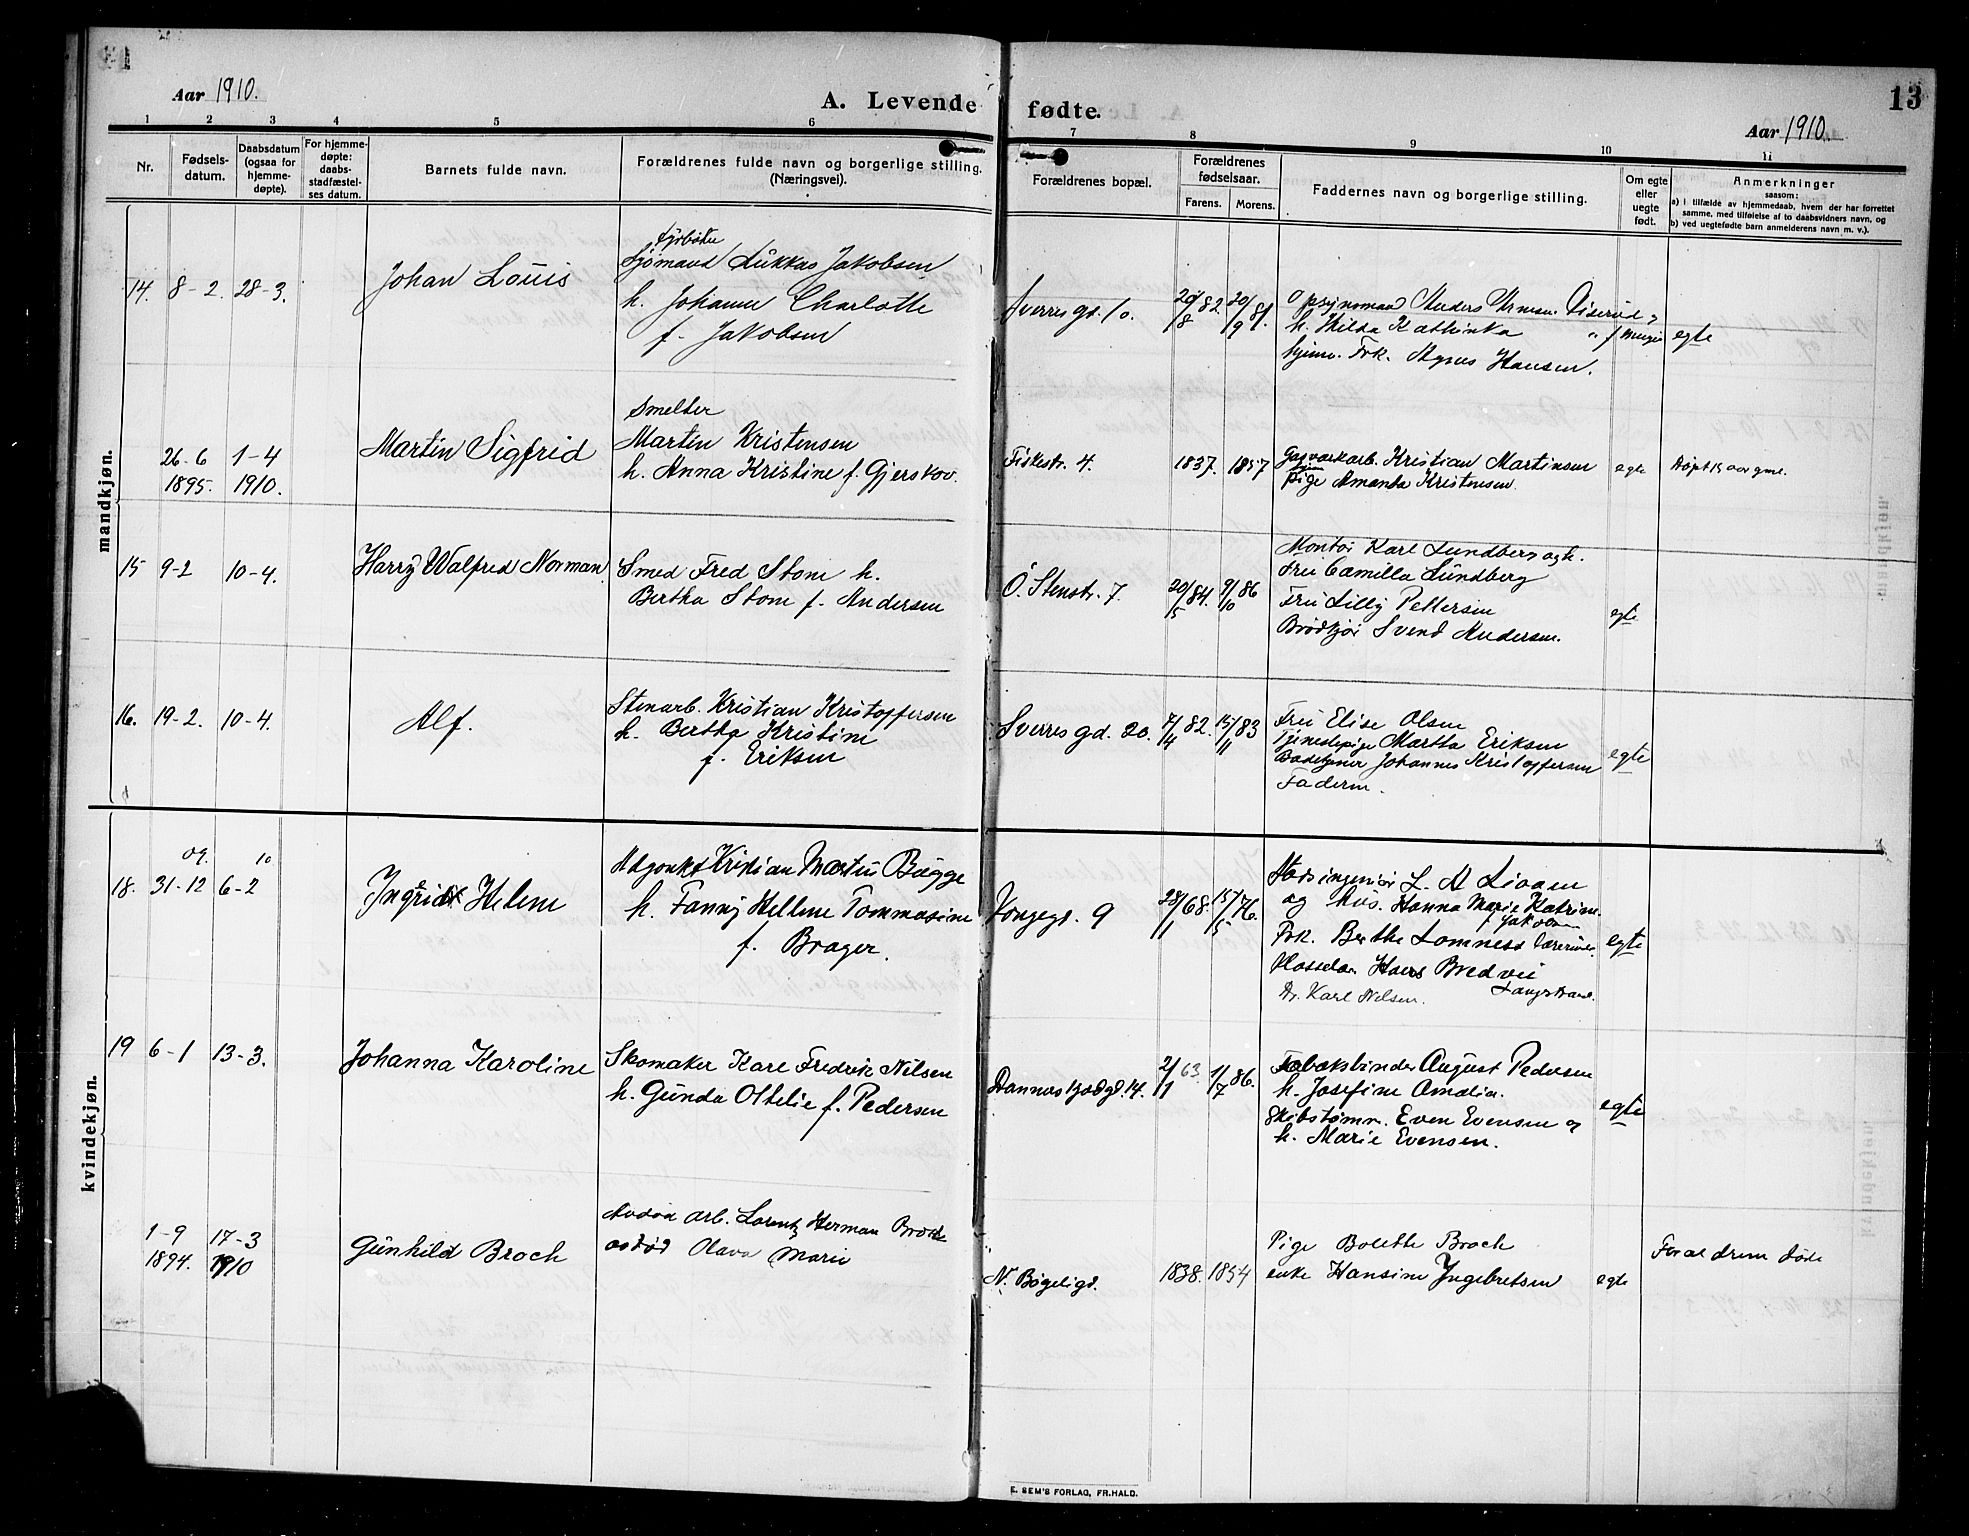 13
Aar 1910.
A. Levende fødte.
Aar 1910.
1 2 3 4 5 6 7 8 9 10 11
Nr.
Fødsels-
datum.
Daabsdatum
(ogsaa for
hjemme-
døpte).
For hjemme-
døpte:
daabs-
stadfæstel-
ses datum.
Barnets fulde navn.
Forældrenes fulde navn og borgerlige stilling.
(Næringsvei).
Forældrenes bopæl.
Forældrenes
fødselsaar.
Farens. Morens.
Faddernes navn og borgerlige stilling.
Om egte
eller
uegte
født.
Anmerkninger
saasom:
a) i tilfælde av hjemmedaab, hvem der har forrettet
samme, med tilføielse af to daabsvidners navn, og
b) ved uegtefødte barn anmelderens navn m. v.).
mandkjøn.
14. 8-2. 28-3.
Johan Louis
Fyrbøter
Sjømand Lukkas Jakobsen
h. Johanne Charlotte
f. Jakobsen
Sverresgd. 10.
20/8 82. 20/9 81.
Opsynsmand Anders
h. Hilda Kathinka
Frk. Agnes Hansen.
egte
26-6 1-4
1895. 1910.
Martin Sigfrid
Smelter
Martin Kristensen
h. Anna Kristine f. Gjerskov.
Fiskestr. 4.
1837. 1857
Gasværkarb. Kristian Martinsen
pige Amanda Kristensen.
egte
Døpt 15 aar gml.
15 9-2 10-4.
Harry Walfred Norman
Smed Fred Stom h.
Bertha Stom f. Andersen
Ö. Stenstr. 7.
20/5 84. 9/10 86
Montör Karl Lundberg og h.
Fru Camilla Lundberg
Fru Lilly Pettersen
Brödkjör Svend Andersen.
egte
16. 19-2. 10-4.
Alf.
Stenarb. Kristian Kristoffersen
h. Bertha Kristine
f. Eriksen
Sverresgd. 20.
7/4 82. 15/11 83
Fru Elise Olsen
Tjenestepige Martha Eriksen
Badetjener Johannes Kristoffersen
Faderen.
egte
kvindekjøn.
09. 10
18. 31-12 6-2
Ingrid Helene
Kristian Martin Bugge
h. Fanny Hellene Tommasine
f. Brager.
Kongegd. 9
28/1 68. 15/5 76.
Stadsingeniör L. A. Liaaen
og hus. Hanna Marie Katrine
f. Jakobsen
Frk. Berthe Lomness lærerinde
Hans Bredvei
Langstrand.
Dr. Karl Nilsen.
egte
19 6-1 13-3.
Johanna Karoline
Skomaker Karl Fredrik Nilsen
h. Gunda Othelie f. Pedersen
Dannas kjoldgd. 14.
2/1 63. 1/7 86.
Tobaksbinder August Pedersen
h. Josefine Amalia.
Skibstømm. Even Evensen og
h. Marie Evensen.
egte
1-9 17-3
1894. 1910
Gunhild Broch
Avdød arb. Lorentz Herman Broch
avdød Olava Marie
N. Bøgeligd.
1838. 1854
Pige Bolette Broch
enke Hansine Ingebretsen
egte
Foræ̈ldrene døde
E. SEM'S FORLAG, FR.HALD.